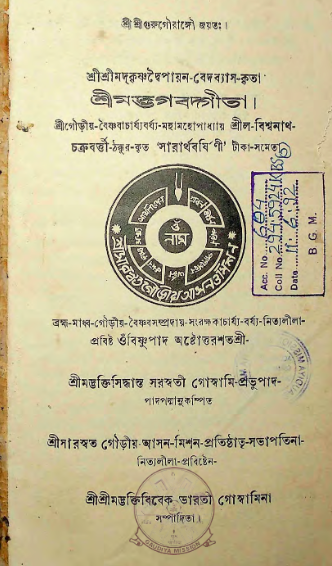 শ্রীশ্রীগুরুগৌরাঙ্গৌ জয়তঃ।
শ্রীশ্রীমদ্‌কৃষ্ণদ্বৈপায়ন-বেদব্যাস-কৃতা
শ্রীমদ্ভগবদ্গীতা।
শ্রীগৌড়ীয়-বৈষ্ণবাচার্য্যবর্য্য-মহামহোপাধ্যায় শ্রীল-বিশ্বনাথ-
চক্রবর্ত্তী-ঠক্কুর-কৃত 'সারার্থবর্ষিণী' টীকা-সমেতা
ওঁ
নাম
শ্রীসারস্বত গৌড়ীয় আসন ও মিশন
Acc. No. 604
Coll No. 294.5924
Date 11.6.92
B G M.
ব্রহ্ম-মাধ্ব-গৌড়ীয়-বৈষ্ণবসম্প্রদায়-সংরক্ষকাচার্য্য-বর্য্য-নিত্যলীলা-
প্রবিষ্ট ওঁবিষ্ণুপাদ অষ্টোত্তরশতশ্রী-
শ্রীমদ্ভক্তিসিদ্ধান্ত সরস্বতী গোস্বামি-প্রভুপাদ-
পাদপদ্মানুকম্পিত
শ্রীসারস্বত গৌড়ীয়-আসন-মিশন-প্রতিষ্ঠাতৃ-সভাপতিনা-
নিত্যলীলা-প্রবিষ্টেন-
শ্রীশ্রীমদ্ভক্তিবিবেক ভারতী গোস্বামিনা
সম্পাদিতা।
GAUDIYA MISSION